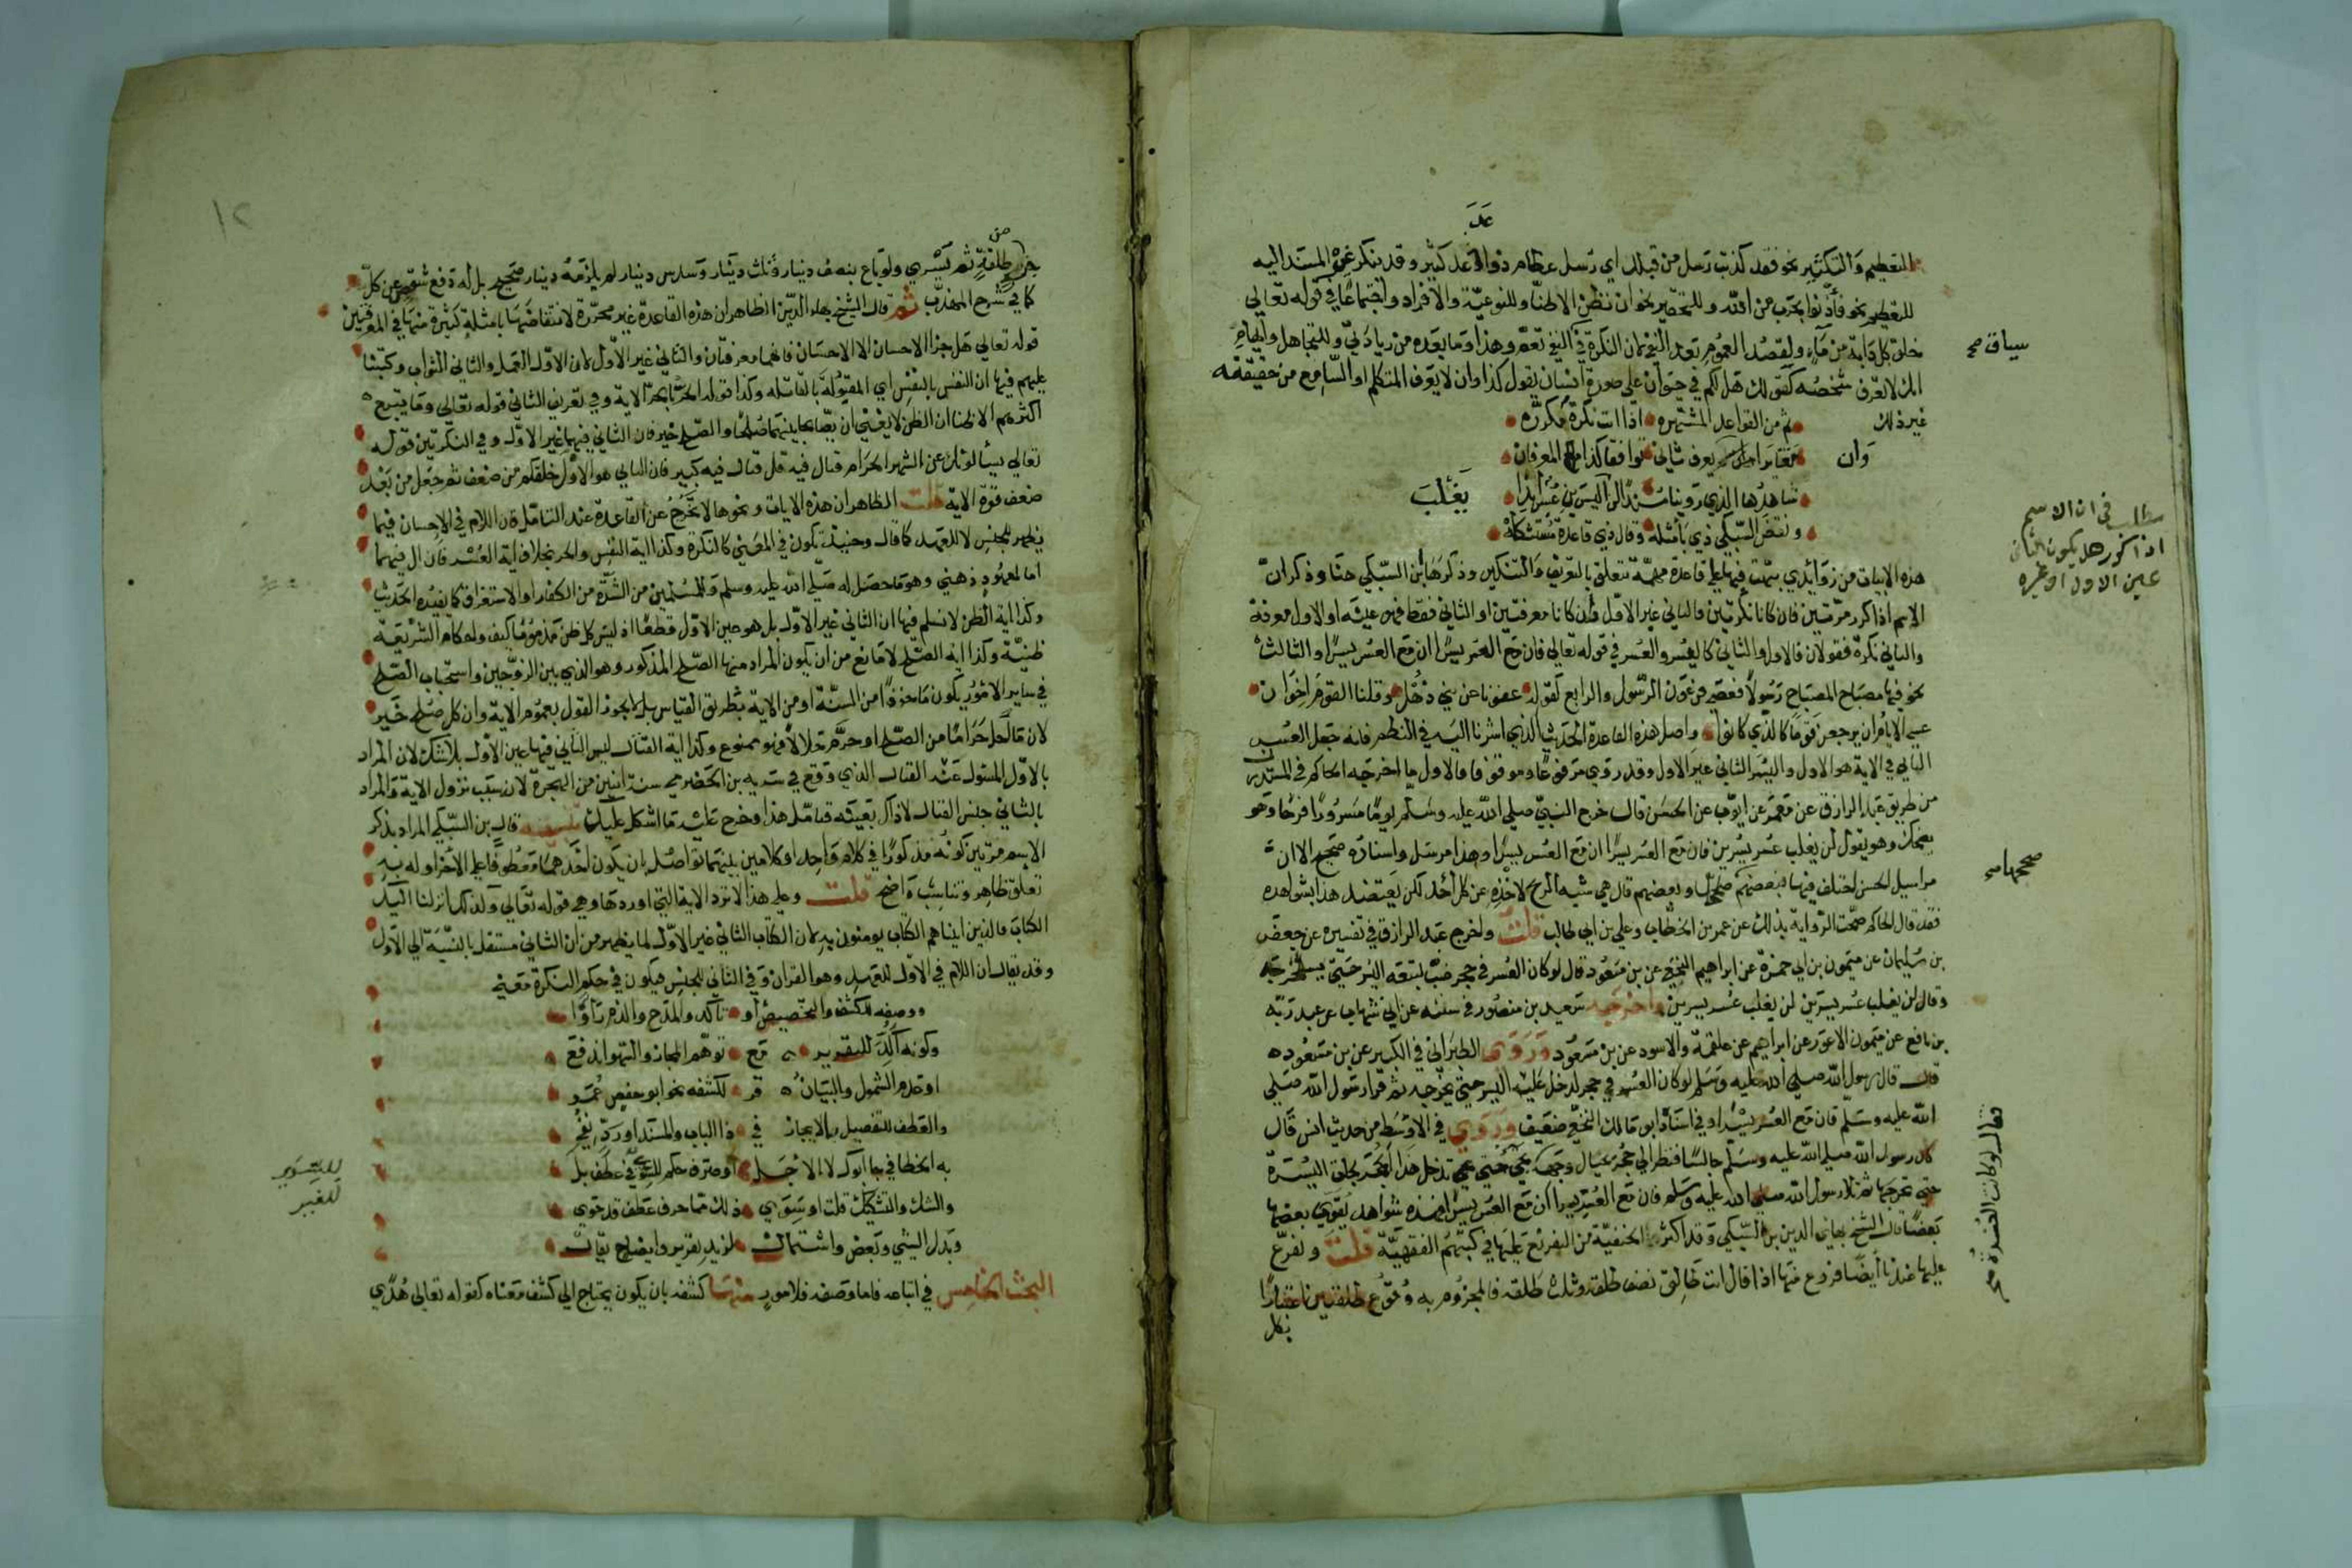 عدد
للتعظيم والتكثير نحو فقد كذبت رسل من قبلك اي رسل عظام ذووا عدد كثير وقد ينكر غير المسند اليه
للتعظيم نحو فأذنوا بحرب من الله وللتحقير نحو ان نظن الا ظنا وللنوعية والافراد واجتماعا في قوله تعالى
خلق كل دابة من ماء ولقصد العموم بعد النفي لان النكرة في النفي تعم وهذا وما بعده من زيادتي وللتجاهل وايهام
انك لا تعرف شخصه كقولك هل لكم في حيوان على صورة انسان يقول كذا وان لا يعرف المتكلم او السامع من حقيقته
غير ذلك ثم من القواعد المشتهره اذا اتت نكرة مكرره
تغايرا وان يعرف ثاني توافقا كذا المعرفان
شاهدها الذي روينا مسندا لن يغلب اليسرين عسر ابدا
ونقض السبكي ذي بأمثله وقال ذي قاعدة مستشكله
هذه الابيات من زوائدي نبهت فيها على قاعدة مهمة تتعلق بالتعريف والتنكير وذكرها ابن السبكي هنا وذكر ان
الاسم اذا كرر مرتين فان كانا نكرتين فالثاني غير الاول وان كانا معرفتين او الثاني فقط فهو عينه او الاول معرفة
والثاني نكرة فقولان فالاول والثاني كاليسر والعسر في قوله تعالى فان مع العسر يسرا ان مع العسر يسرا والثالث
نحو فيها مصباح المصباح رسولا فعصى فرعون الرسول والرابع كقوله عفونا عن بني ذهل وقلنا القوم اخوان
عسى الايام ان يرجعن قوما كالذي كانوا واصل هذه القاعدة الحديث الذي اشرنا اليه في النظم فانه جعل العسر
الثاني في الاية هو الاول واليسر الثاني غير الاول وقد روي مرفوعا وموقوفا فالاول ما اخرجه الحاكم في المستدرك
من طريق عبد الرازق عن معمر عن ايوب عن الحسن قال خرج النبي صلى الله عليه وسلم يوما مسرورا فرحا وهو
يضحك وهو يقول لن يغلب عسر يسرين فان مع العسر يسرا ان مع العسر يسرا وهذا مرسل واسناده صحيح الا ان
مراسيل الحسن اختلف فيها فبعضهم صححها وبعضهم قال هي شبه الريح لاخذه عن كل أحد لكن يعتضد هذا بشواهده
فقد قال الحاكم صحت الرواية بذلك عن عمر بن الخطاب وعلي بن ابي طالب قلت واخرج عبد الرازق في تفسيره عن جعفر
بن سليمان عن ميمون بن ابي حمزة عن ابراهيم النخعي عن بن مسعود قال لو كان العسر في جحر ضب لتبعه اليسر حتى يستخرجه
وقال لن يغلب عسر يسرين لن يغلب عسر يسرين واخرجه سعيد بن منصور في سننه عن ابي شهاب عن عبد ربه
بن نافع عن ميمون الاعور عن ابراهيم عن علقمة والاسود عن بن مسعود وروى الطبراني في الكبير عن بن مسعود
قال قال رسول الله صلى الله عليه وسلم لو كان العسر في جحر لدخل عليه اليسر حتى يخرجه ثم قرا رسول الله صلى
الله عليه وسلم فان مع العسر يسرا وفي اسناده ابو مالك النخعي ضعيف وروي في الاوسط من حديث انس قال
كان رسول الله صلى الله عليه وسلم جالسا فنظر الى جحر بحيال وجهه تجي حتى تدخل هذا الجحر لجاءت اليسرة
حتى تخرجها ثم تلا رسول الله صلى الله عليه وسلم فان مع العسر يسرا ان مع العسر يسرا فهذه شواهد يقوي بعضها
بعضا قال الشيخ بهاء الدين بن السبكي وقد اكثر الحنفية من التفريع عليها في كتبهم الفقهية قلت وتفرع
عليها عندنا أيضا فروع منها اذا قال انت طالق نصف طلقة وثلث طلقة فالمجزوم به وقوع طلقتين اعتبارا
بكل
سياق صح
يغلب
مطلب في ان الاسم
اذا كرر هل يكون الثاني
عين الاول او غيره
صححها صح
فقال لو كانت العسرة صح
١٢
من
طلقة ثم تسري ولو باع بنصف دينار وثلث دينار وسدس دينار لم يلزمه دينار صحيح بل له دفع شقص عن كل
كما في شرح المهذب ثم قال الشيخ بهاء الدين الظاهر ان هذه القاعدة غير محررة لانتقاضها بامثلة كثيرة منها في المعرفتين
قوله تعالى هل جزا الاحسان الا الاحسان فانهما معرفتان والثاني غير الاول لان الاول العمل والثاني الثواب وكتبنا
عليهم فيها ان النفس بالنفس اي المقتولة بالقاتله وكذا قوله الحر بالحر الاية وفي تعريف الثاني قوله تعالى وما يتبع
اكثرهم الا ظنا ان الظن لا يغني ان يصالحا بينهما صلحا والصلح خير فان الثاني فيهما غير الاول وفي النكرتين قوله
تعالى يسألونك عن الشهر الحرام قتال فيه قل قتال فيه كبير فان الثاني هو الاول خلقكم من ضعف ثم جعل من بعد
ضعف قوة الاية قلت الظاهر ان هذه الايات ونحوها لا تخرج عن القاعدة عند التامل فان اللام في الاحسان فيما
يظهر للجنس لا للعهد كما قال وحينئذ تكون في المعنى كالنكرة وكذا اية النفس والحر بخلاف اية العسر فان ال فيهما
اما لمعهود ذهني وهو ما حصل له صلى الله عليه وسلم وللمسلمين من الشدة من الكفار او الاستغراق كما يفيده الحديث
وكذا اية الظن لا نسلم فيها ان الثاني غير الاول بل هو عين الاول قطعا اذ ليس كل ظن مذموما كيف واحكام الشريعة
ظنية وكذا اية الصلح لا مانع من ان يكون المراد منها الصلح المذكور وهو الذي بين الزوجين واستحباب الصلح
في ساير الامور يكون ماخوذا من السنة او من الاية بطريق القياس بل لا يجوز القول بعموم الاية وان كل صلح خير
لان ما احل حراما من الصلح او حرم حلالا فهو ممنوع وكذا اية القتال ليس الثاني فيها عين الاول بلا شك لان المراد
بالاول المسئول عنه القتال الذي وقع في سرية بن الحضرمي سنة اثنين من الهجرة لانه سبب نزول الاية والمراد
بالثاني جنس القتال لا ذاك بعينه فتامل هذا وخرج عليه ما اشكل عليك تنبيه قال بن السبكي المراد بذكر
الاسم مرتين كونه مذكورا في كلام واحد او كلامين بينهما تواصل بان يكون احدهما معطوفا على الاخر او له به
تعلق ظاهر وتناسب واضح قلت وعلى هذا لا ترد الاية التي اوردها وهي قوله تعالى وكذلك انزلنا اليك
الكتاب فالذين اتيناهم الكتاب يومنون به لان الكتاب الثاني غير الاول لما يظهر من ان الثاني مستقل بالنسبة الى الاول
وقد يقال ان اللام في الاول للعهد وهو القران وفي الثاني للجنس فيكون في حكم النكرة معنى
ووصفه للكشف والتخصيص أو تأكد والمدح والذم رأوا
وكونه أكد للتقرير مع توهم المجاز والسهو اندفع
او عدم الشمول والبيان قر للكشف نحو ابو حفص عمر
والعطف للتفصيل بالايجاز في ذا الباب والمسند او رد نفي
به الخطا في جا ابوك لا الاجل او صرف حكم للسوى في عطف بل
والشك والتشكيك قلت او سوى ذلك مما حرف عطف قد حوى
وبدل الشي وبعض واشتمال لمزيد تقرير وايضاح يقال
البحث الخامس في اتباعه فاما وصفه فلامور منها كشفه بان يكون يحتاج الى كشف معناه كقوله تعالى هدى
للسوى
للغير